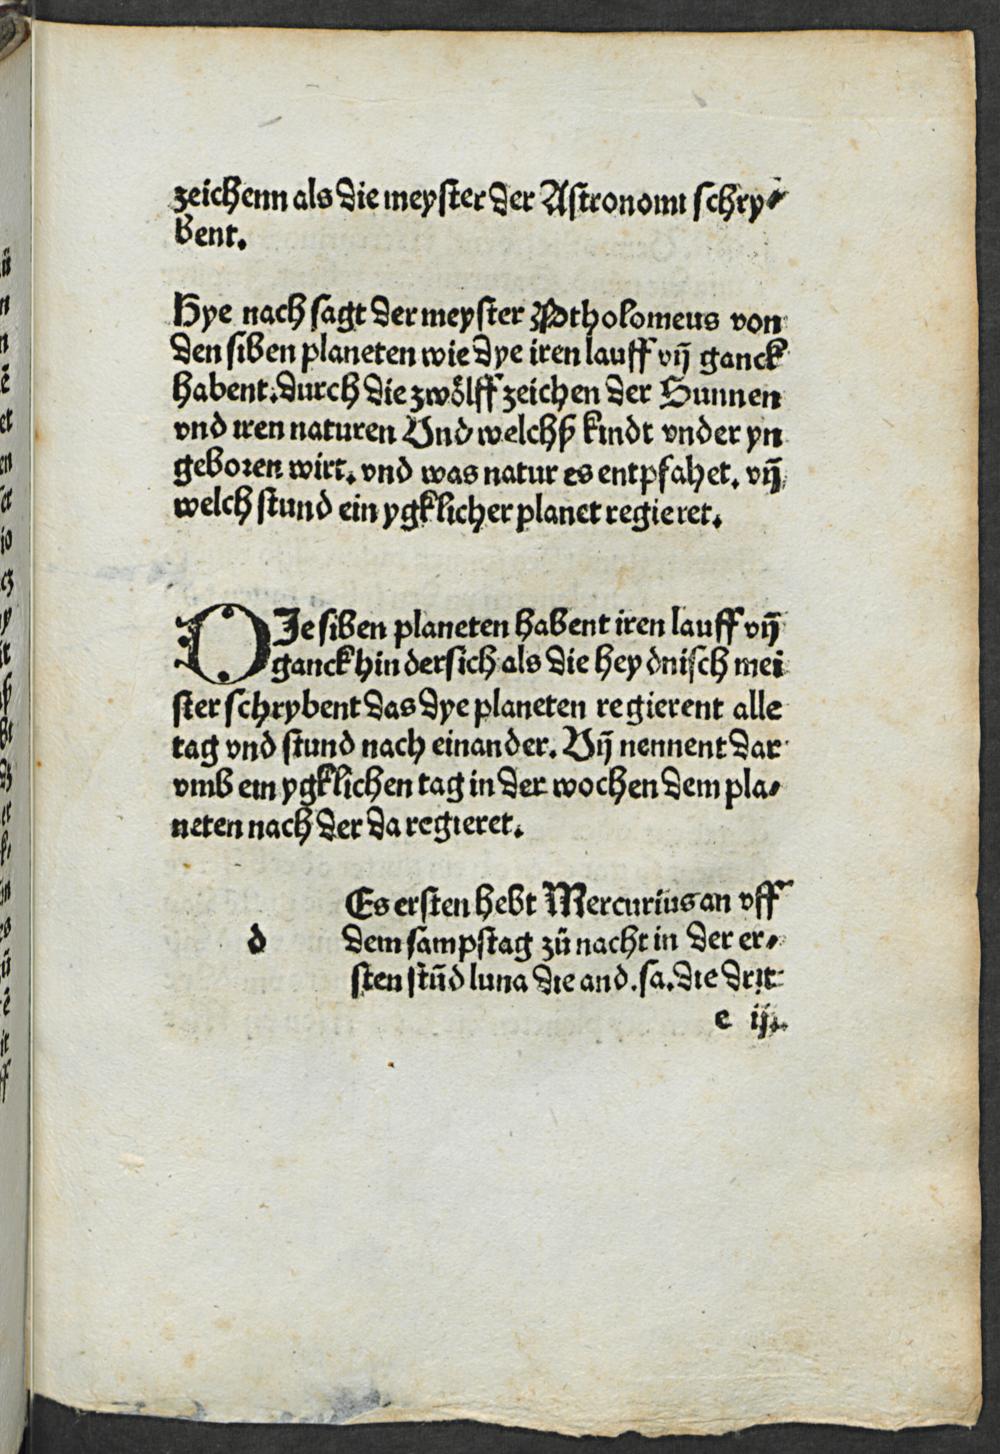 zeichenn als die meyster der Astronomi schry⸗
bent.
Hye nach sagt der meyster Ptholomeus von
den siben planeten wie dye iren lauff vñ ganck
habent. durch die zwölff zeichen der Sunnen
vnd iren naturen Vnd welchß kindt vnder yn
geboren wirt. vnd was natur es entpfahet. vñ
welch stund ein ygklicher planet regieret.
DJe siben planeten habent iren lauff vñ
ganck hindersich als die heydnisch mei
ster schrybent das dye planeten regierent alle
tag vnd stund nach einander. Vñ nennent dar
vmb ein ygklichen tag in der wochen dem pla⸗
neten nach der da regieret.
Es ersten hebt Mercurius an vff
d dem sampstag zů nacht in der er⸗
sten stũd luna die and. sa. die drit
e ij.